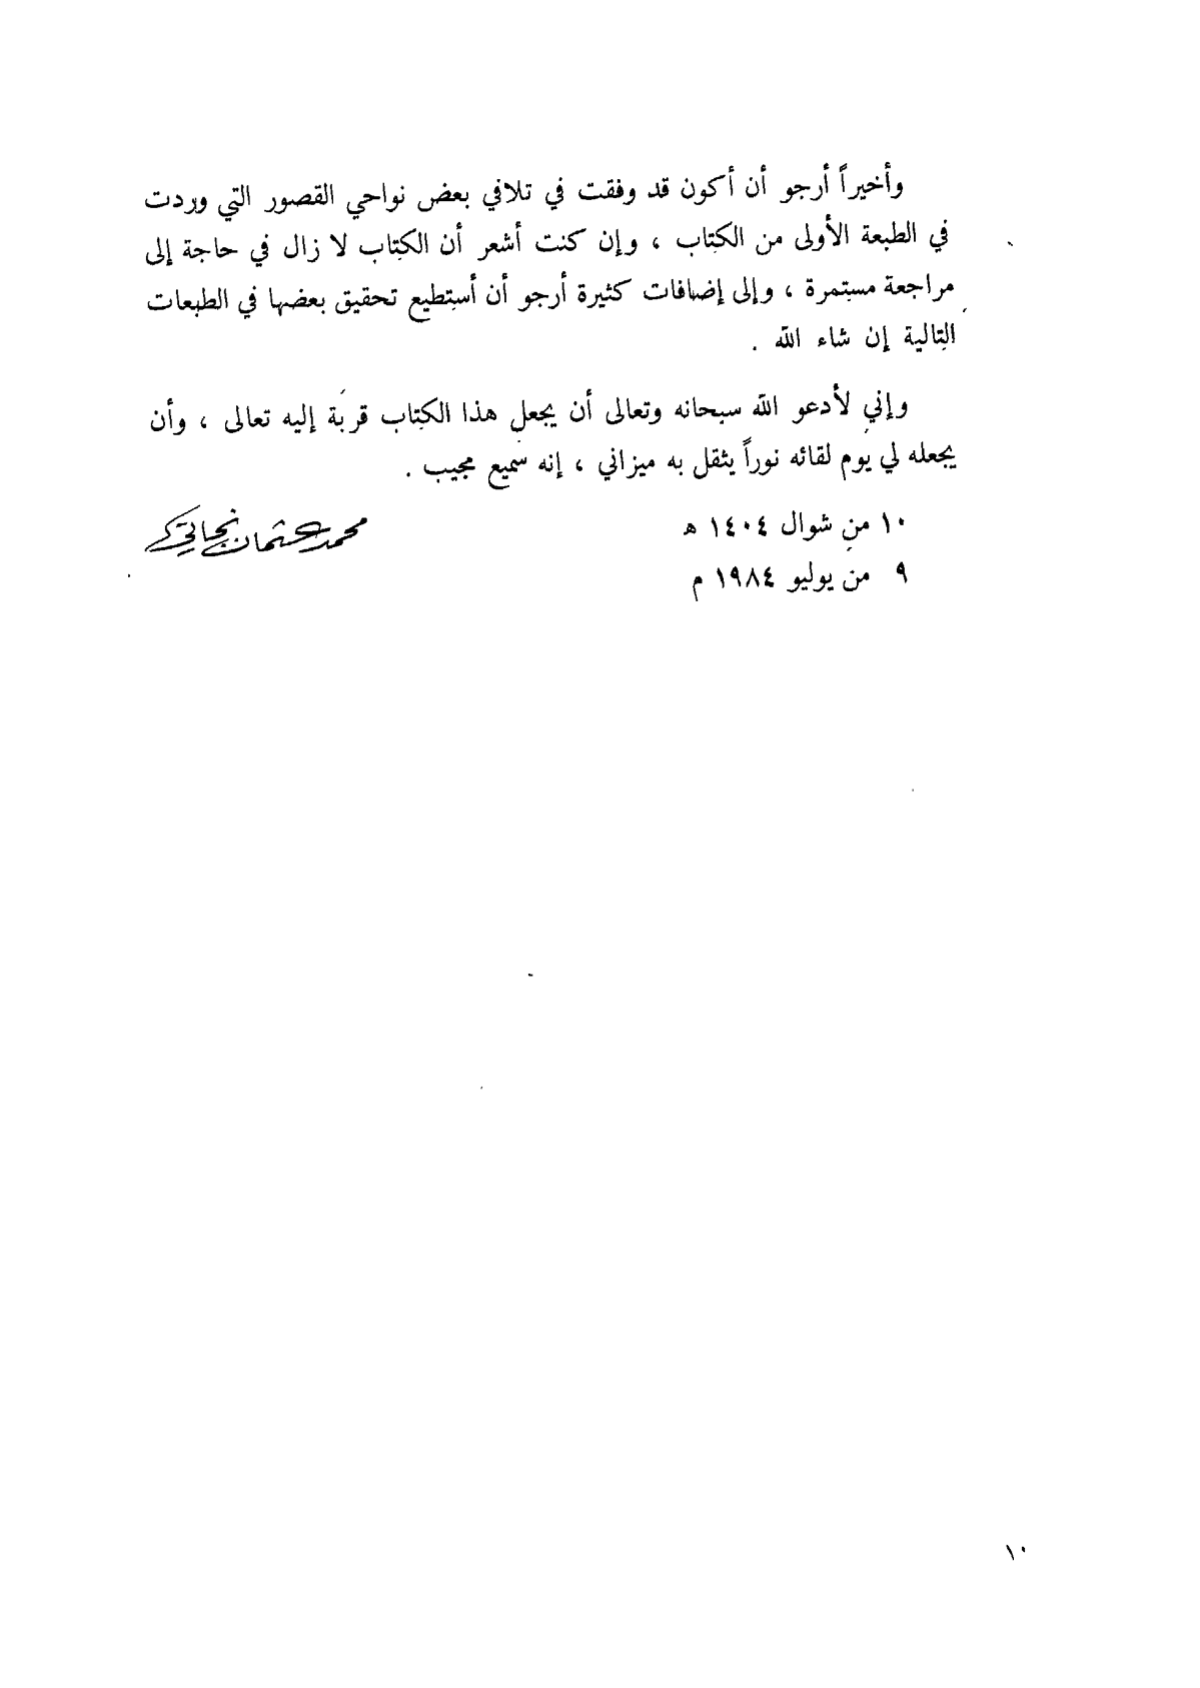 وأخيراً أرجو أن أكون قد وفقت في تلافي بعض نواحي القصور التي وردت
في الطبعة الأولى من الكتاب ، وإن كنت أشعر أن الكتاب لا زال في حاجة إلى
مراجعة مستمرة ، وإلى إضافات كثيرة أرجو أن أستطيع تحقيق بعضها في الطبعات
التالية إن شاء الله .
وإني لأدعو الله سبحانه وتعالى أن يجعل هذا الكتاب قربة إليه تعالى ، وأن
يجعله لي يوم لقائه نوراً يثقل به ميزاني ، إنه سميع مجيب .
١٠ من شوال ١٤٠٤ هـ
محمد عثمان نجاتي
٩ من يوليو ١٩٨٤ م
١٠